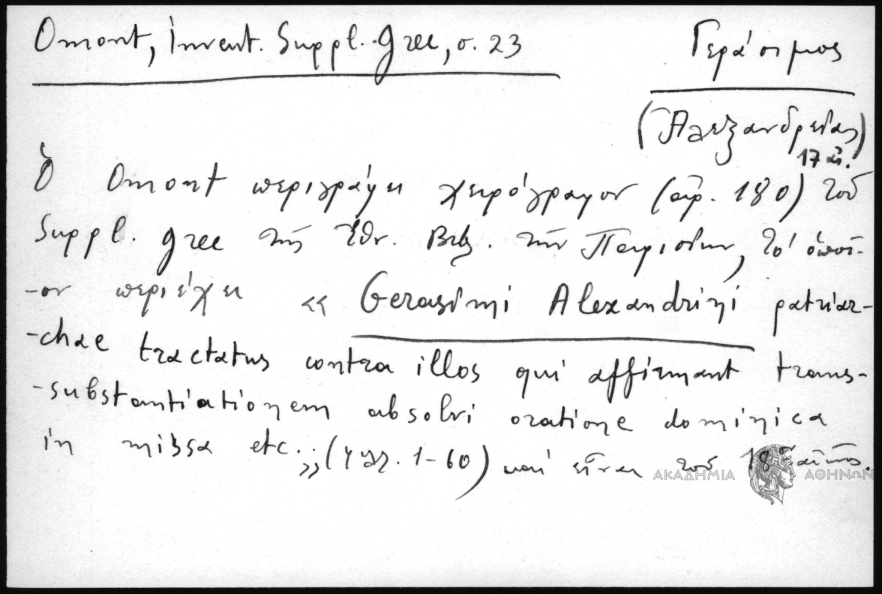 Omont, Invent. Suppl. Grec, σ. 23
Γεράσιμος
(Ἀλεξανδρείας)
17 αἰ.
Ὁ Omont περιγράφει χειρόγραφον (ἀρ. 180) τοῦ
Suppl. grec τῆς Ἐθν. Βιβ. τῶν Παρισίων, τὸ ὁποῖ-
-ον περιέχει « Gerasimi Alexandrini patriar-
-chae tractatus contra illos qui affirmant trans-
-substantiationem absolvi oratione dominica
in missa etc. » (φύλ. 1-60) καὶ εἶναι τοῦ 18ου αἰῶνος.
ΑΚΑΔΗΜΙΑ ΑΘΗΝΩΝ